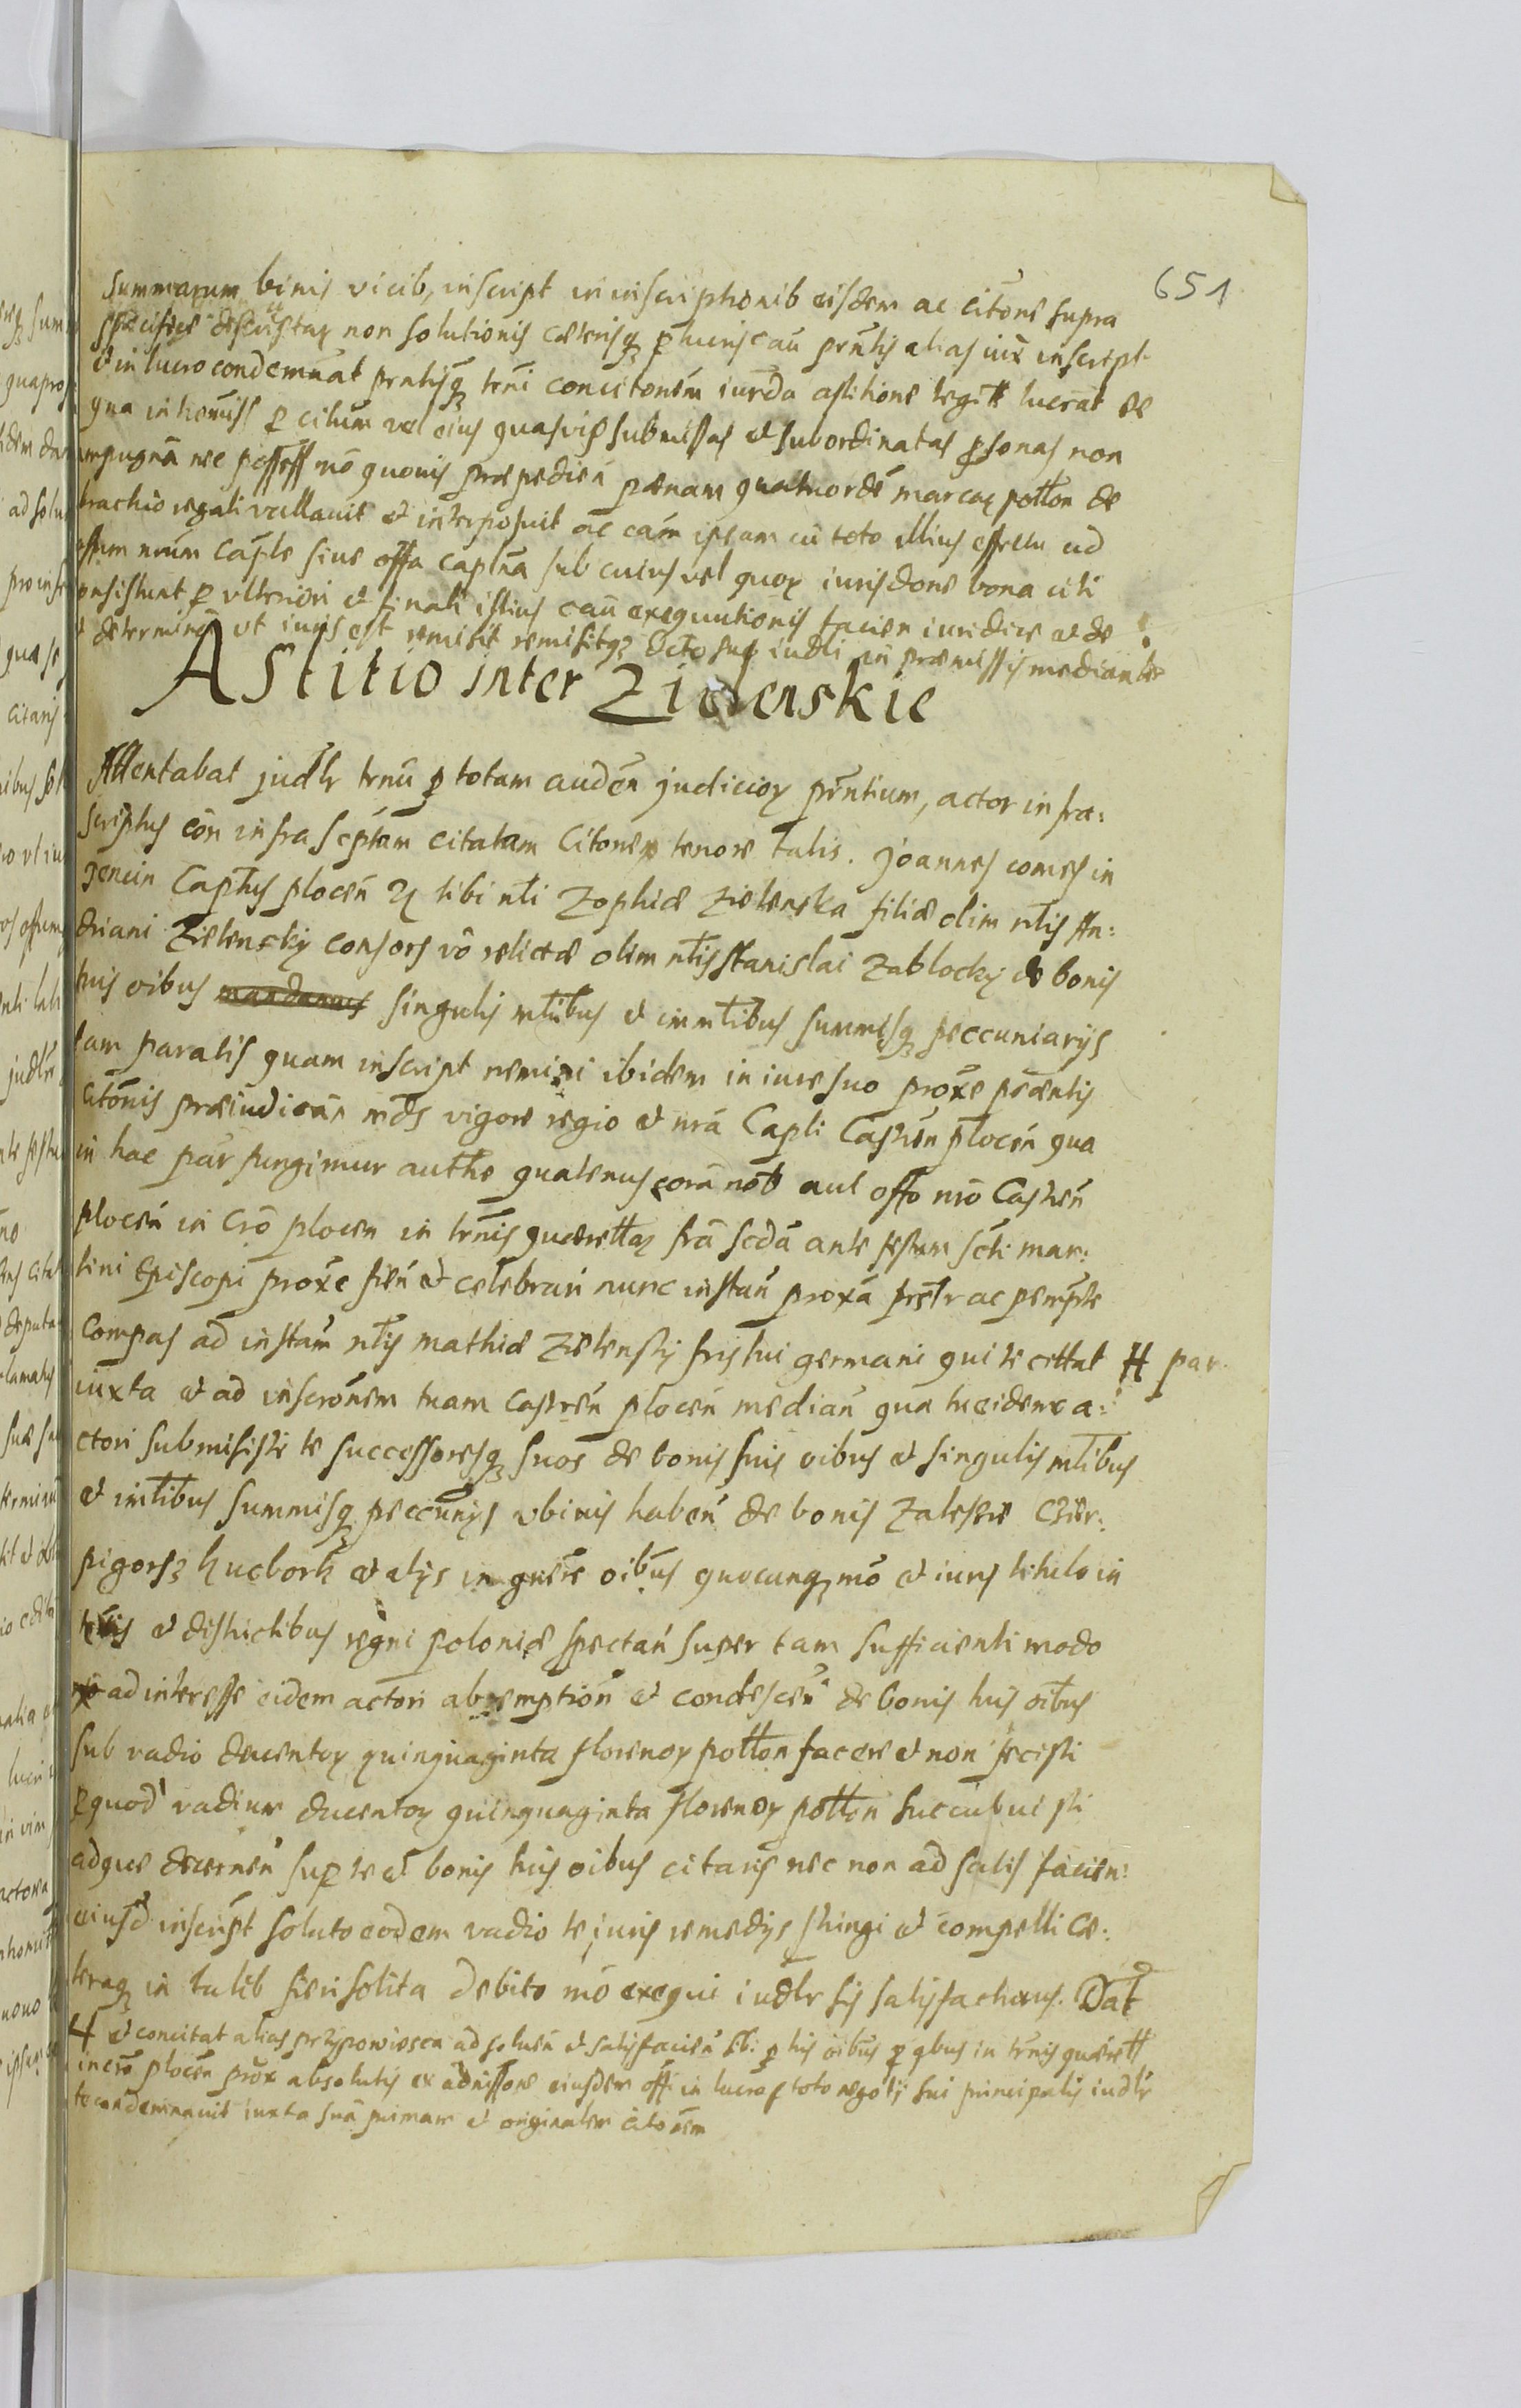 651
summarum binis vicib, inscript in inscriptionib eisdem ac citone supra
specifice descriptar non solutionis cæterisq p lucris cau prntis alias iux inscript
et in lucro condemnat prntisq trni concitonem iurda astitione legitt lucrat de
qua in hemiss p citum vel eius quasvis submissas et subordinatas psonas non
impugna nec possess mo quovis præpedien pænam quatuorde marcar potton de
brachio regali vallavit et interposuit ac eam ipsam cu toto illius effectu ad
offum nrum Caple sive offa caplna sub cuius vel quor iurisdone bona citi
consistunt p ulteriori et finali istius cau exequutionis facien iuridice ac de
determina ut iuris est remisit remisitq Octo sup iudli in præmissis mediante
Astitio inter Zielenskie
Attentabat judlr trnu p totam auden judicior prntium, actor infra:
scriptus con infra scptam citatam Citonem tenore talis. Joannes comes in
Captus plocen tibi nli Zophiæ Zielenska filiæ olim nlis An:
driani Zielenscky consors vo relictæ olim nlis Stanislai Zablocky de bonis
tuis oibus mandamus singulis mtibus et immtibus summisq peccuniarys
tam paratis quam inscript nemini ibidem in iure suo proxe pcedentis
citonis præiudican mds vigore regio et nra Capli Castren plocen qua
in hac par fungimur authe quatenus cora nob aut offo nro Castren
plocen in Cro plocen in trnis quærettar fra scda ante festum scti mar:
tini Episcopi proxe fien et celebran nunc instan proxa prstr ac pempte
Compas ad instam nlis mathiæ Zielensky fris tui germani qui te cittat H par
iuxta et ad inscronem tuam castren plocen median qua tu eidem a:
ctori submisisti te successoresq suos de bonis suis oibus et singulis mtibus
et imtibus summisq peccunys ubivis haben de bonis Zalesie Czer:
pigorsz et alys in gnere oibus quocunq mo et iuris titulo in
tris et districtibus regni poloniæ spectan super tam sufficienti modo
ad interesse eidem actori abremption et condescen de bonis tuis oibus
sub vadio ducentor quinquaginta florenor potton facere et non fecisti
p quod vadium ducentor quinquaginta florenor potton succubuisti
adque decernen sup te et bonis tuis oibus citaris nec non ad satis facien:
eiusd inscript soluto eodem vadio te juris remedys stringi et compelli Cæ:
teraq in talib fieri solita debito mo exequi iudlr sis satisfacturus. Dat
H et concitat alias przypowiesca ad soluen et satisfacien sb: p his oibus p qbus in trnis quærett
in cro plocen prox absolutis ex admissone eiusdem offi in lucro toto negoti sui principalis iudlr
te condemnavit iuxta sua primam et originalem citonem